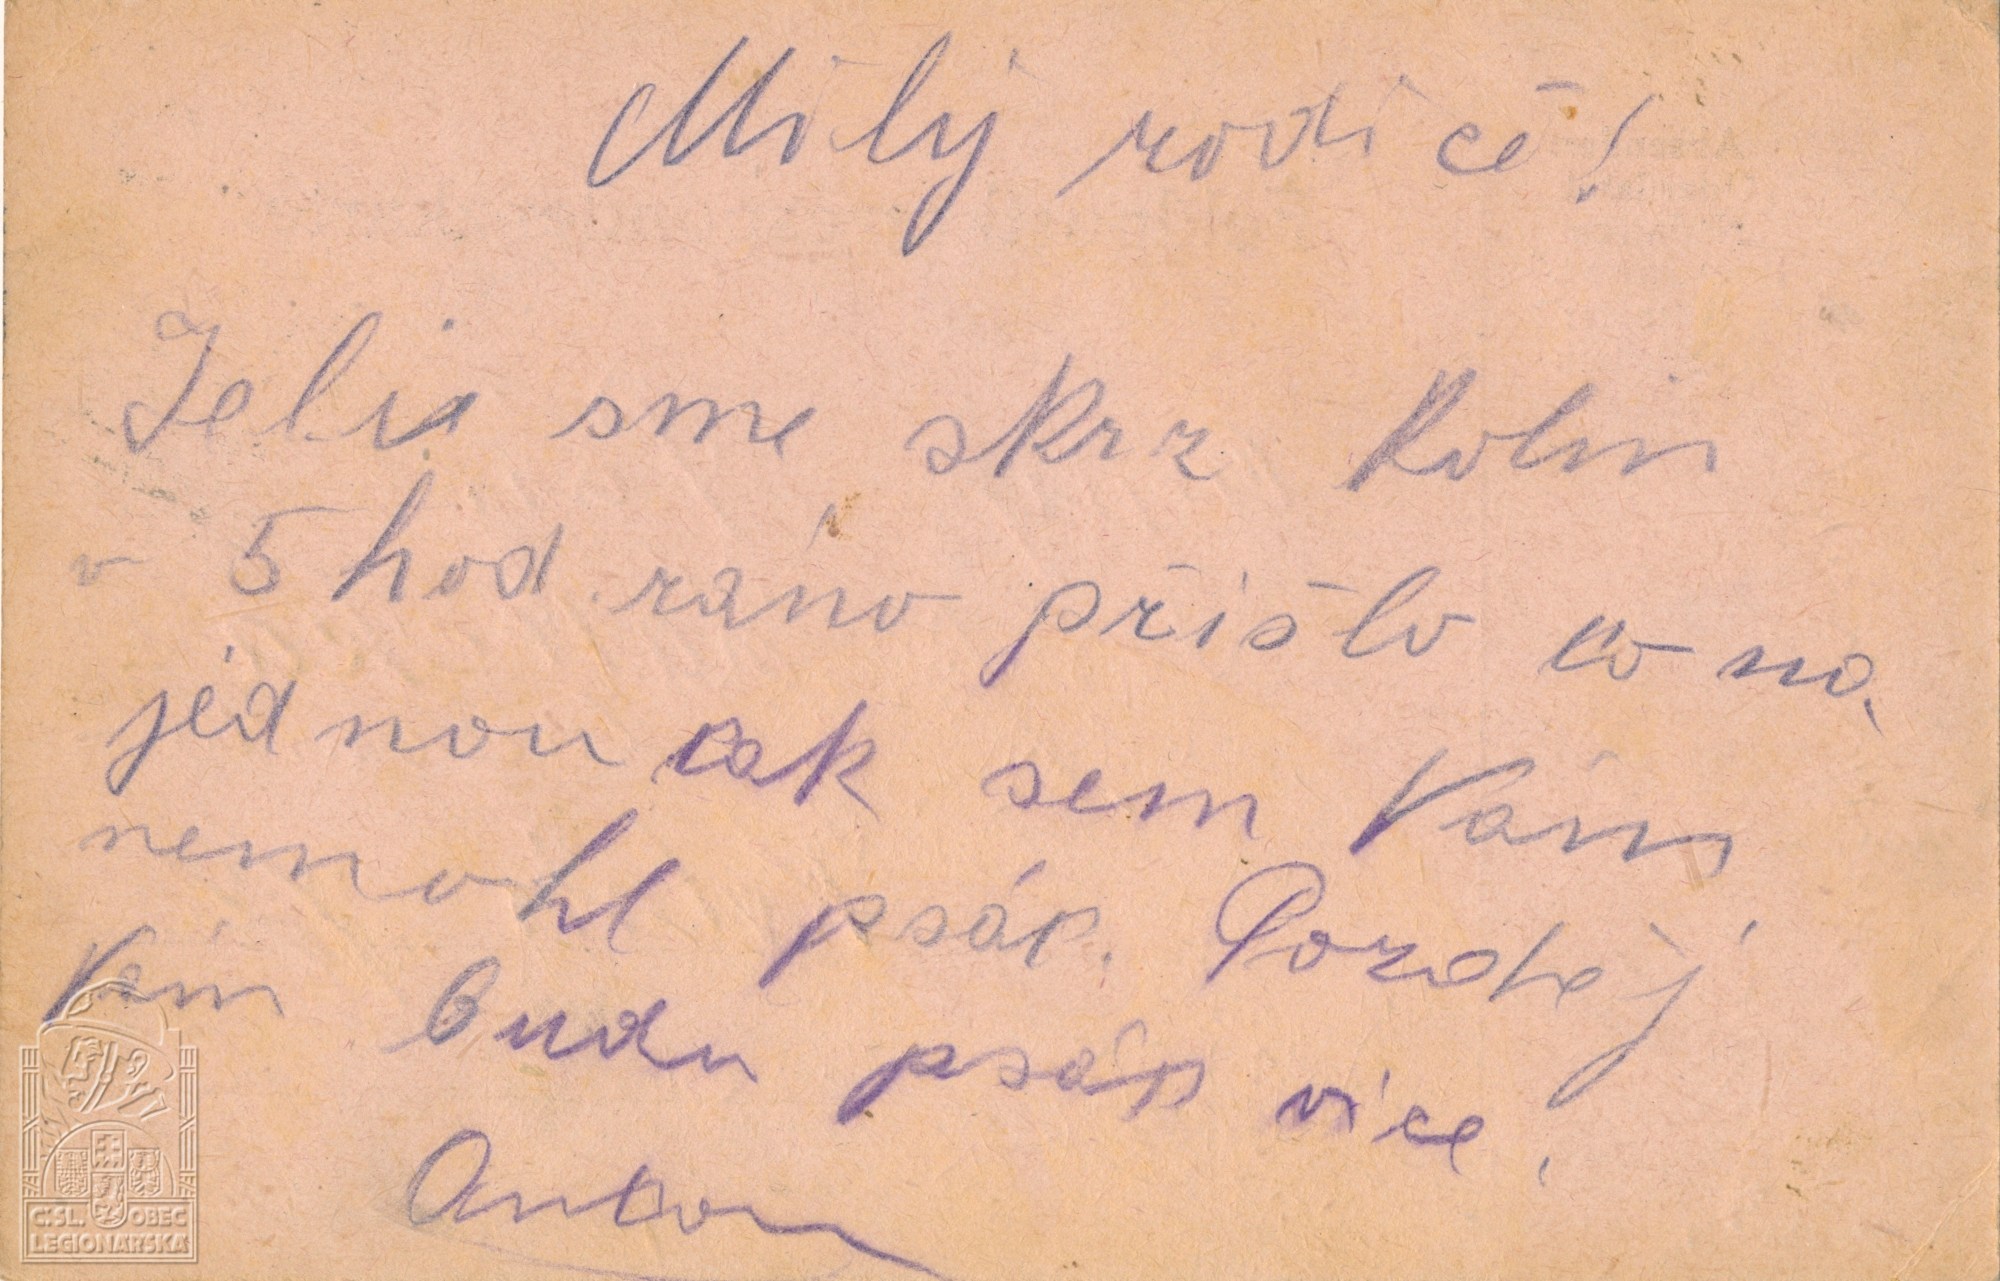 Milý rodiče!
Jeli sme skrz Kolin
v 5 hod ráno přišlo to na
jednou tak sem Vám
nemohl psát. Pozděj
Vám budu psát více.
Anton
ČSL. OBEC
LEGIONÁŘSKÁ